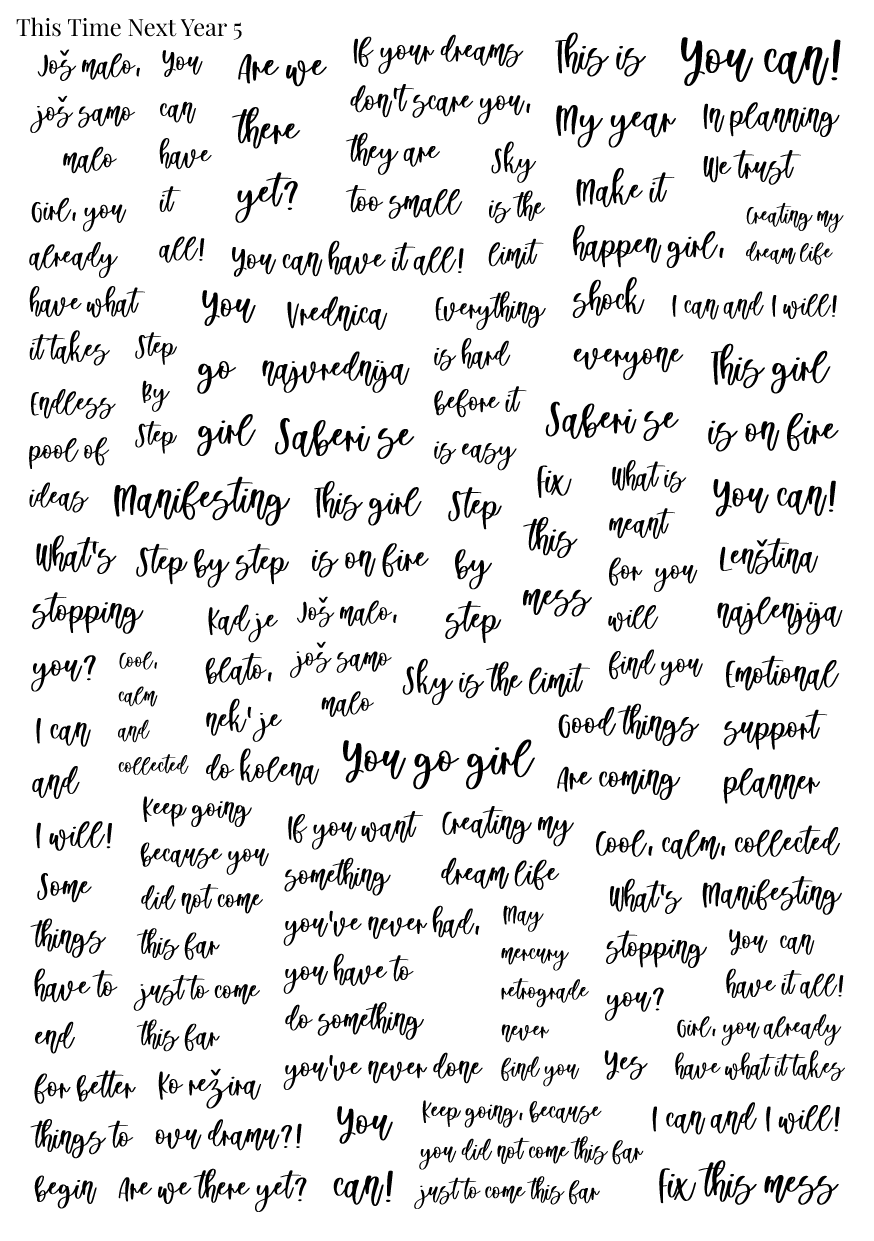 This Time Next Year 5
Još malo,
još samo
malo
You
can
have
it
all!
Are we
there
yet?
If your dreams
don't scare you,
they are
too small
Sky
is the
limit
This is
My year
You can!
In planning
We trust
Make it
happen girl,
shock
everyone
Creating my
dream life
Girl, you
already
have what
it takes
You can have it all!
I can and I will!
You
go
girl
Vrednica
najvrednija
Everything
is hard
before it
is easy
Step
By
Step
This girl
is on fire
Endless
pool of
ideas
Saberi se
Saberi se
Manifesting
This girl
is on fire
Step
by
step
Fix
this
mess
What is
meant
for you
will
find you
You can!
What's
stopping
you?
Step by step
Lenština
najlenjija
Kad je
blato,
nek' je
do kolena
Još malo,
još samo
malo
Cool,
calm
and
collected
Sky is the limit
Emotional
support
planner
I can
and
I will!
You go girl
Good things
Are coming
Keep going
because you
did not come
this far
just to come
this far
If you want
something
you've never had,
you have to
do something
you've never done
Creating my
dream life
Cool, calm, collected
Some
things
have to
end
for better
things to
begin
May
mercury
retrograde
never
find you
What's
stopping
you?
Manifesting
You can
have it all!
Girl, you already
have what it takes
Yes
Ko režira
ovu dramu?!
You
can!
Keep going, because
you did not come this far
just to come this far
I can and I will!
Are we there yet?
Fix this mess